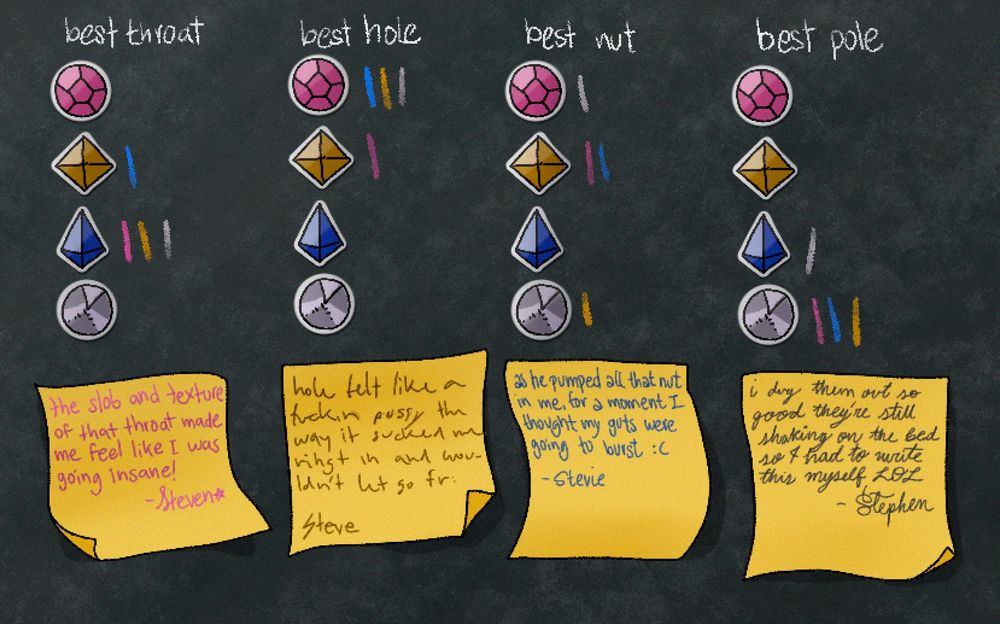 best throat
best hole
best nut
best pole
the slob and texture
of that throat made
me feel like I was
going insane!
-Steven☆
hole felt like a
fuckin pussy the
way it sucked me
right in and wou-
ldn't let go fr.
Steve
as he pumped all that nut
in me, for a moment I
thought my guts were
going to burst :C
-Stevie
i dug them out so
good they're still
shaking on the bed
so I had to write
this myself LOL
- Stephen